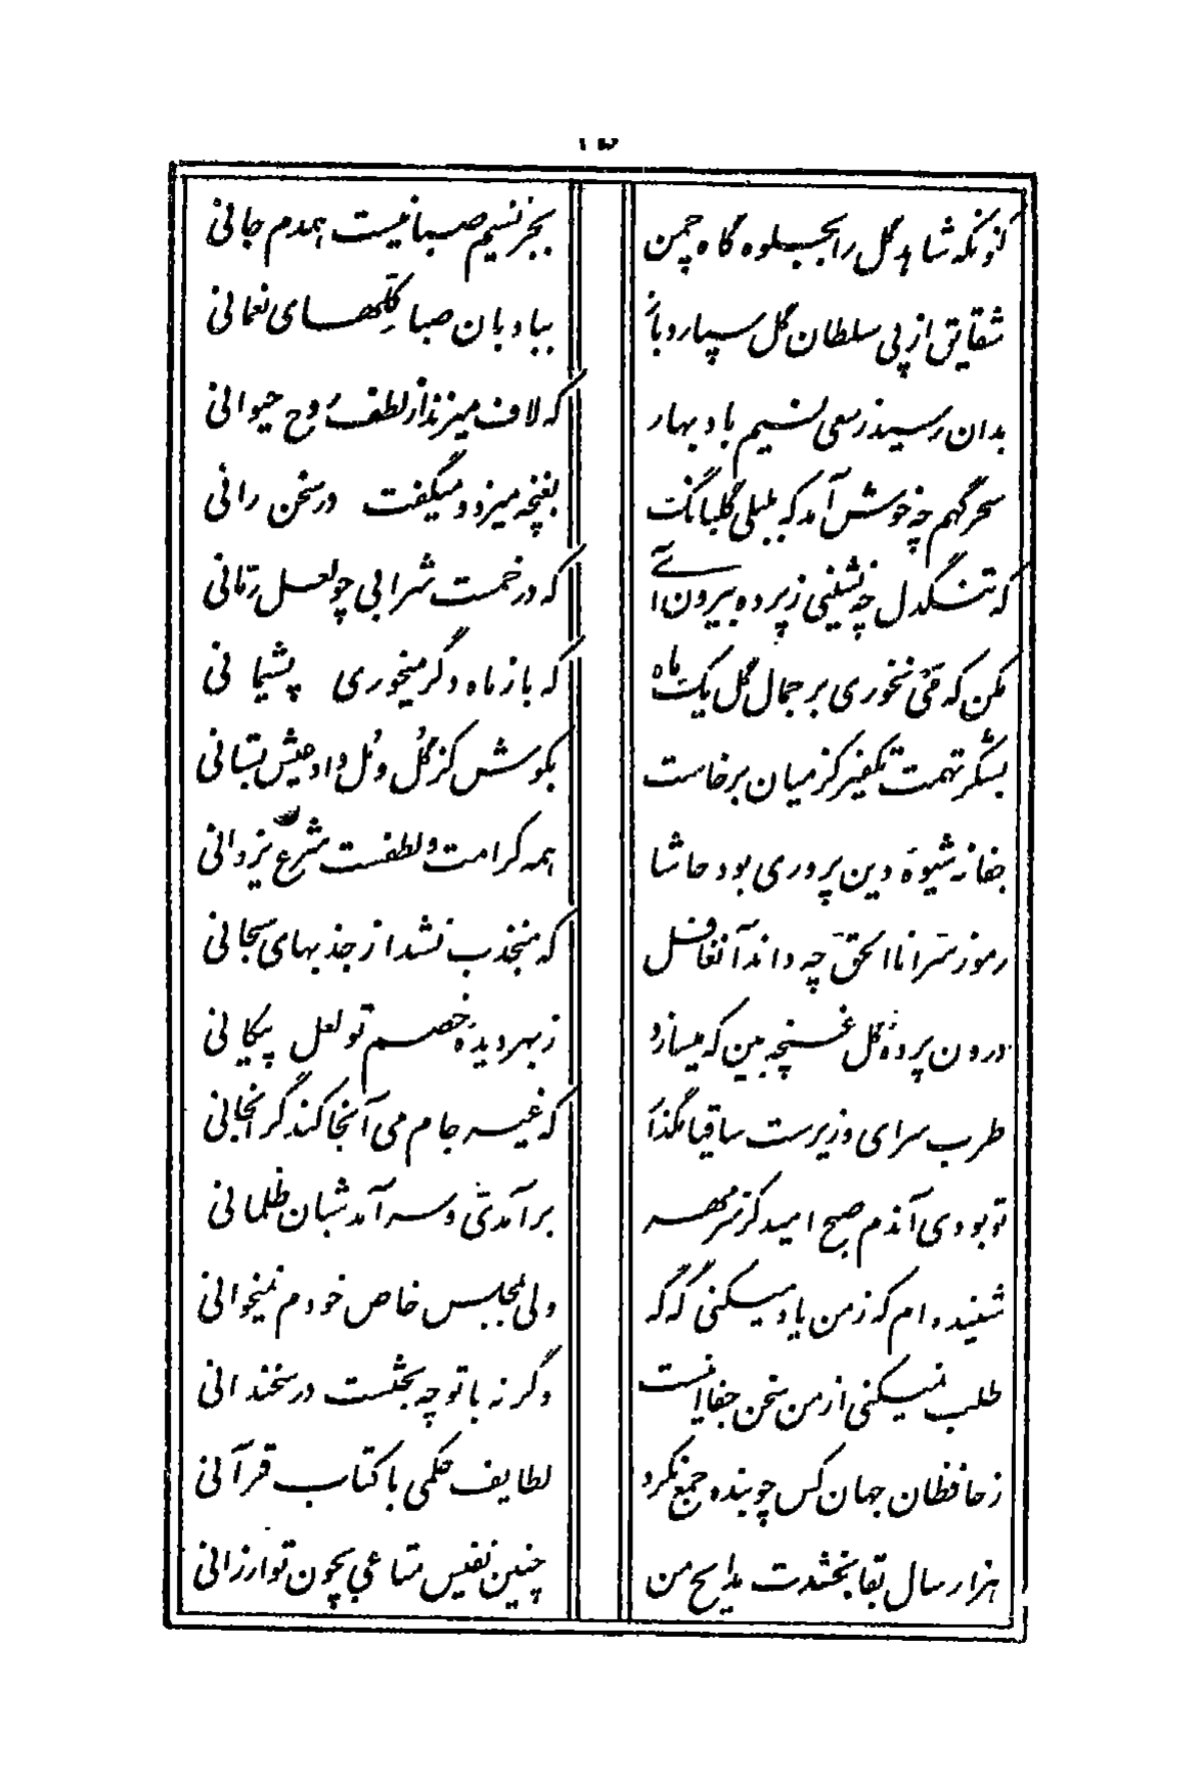 کنونکه شاهد گل را بجلوه گاه چمن
بجز نسیم صبا نیست همدم جانی
شقایق از پی سلطان گل سپارد باز
ببادبان صبا کلّهای نعمانی
بدان رسید ز سعی نسیم باد بهار
که لاف میزند از لطف روح حیوانی
سحرگهم چه خوش آمد که بلبلی گلبانگ
بغنچه میزد و میگفت در سخن رانی
که تنگدل چه نشینی ز پرده بیرون آی
که در خمست شرابی چو لعل رمّانی
مکن که می نخوری بر جمال گل یک ماه
که باز ماه دگر میخوری پشیمانی
بشکر تهمت تکفیر کز میان برخاست
بکوش کز گل و مل داد عیش بستانی
جفا نه شیوهٔ دین پروری بود حاشا
همه کرامت و لطفست شرع یزدانی
رموز سر انا الحق چه داند آن غافل
که منجذب نشد از جذبهای سبحانی
درون پردهٔ گل غنچه بین که میسازد
ز بهر دیدهٔ خصم تو لعل پیکانی
طرب سرای وزیرست ساقیا مگذار
که غیر جام می آنجا کند گرانجانی
تو بودی آندم صبح امید کز سر مهر
برآمدی و سر آمد شبان ظلمانی
شنیده ام که ز من یاد میکنی گه گه
ولی بمجلس خاص خودم نمیخوانی
طلب نمیکنی از من سخن جفا اینست
وگرنه با تو چه بحثست در سخندانی
ز حافظان جهان کس چو بنده جمع نکرد
لطایف حکمی با کتاب قرآنی
هزار سال بقا بخشدت مدایح من
چنین نفیس متاعی بچون تو ارزانی